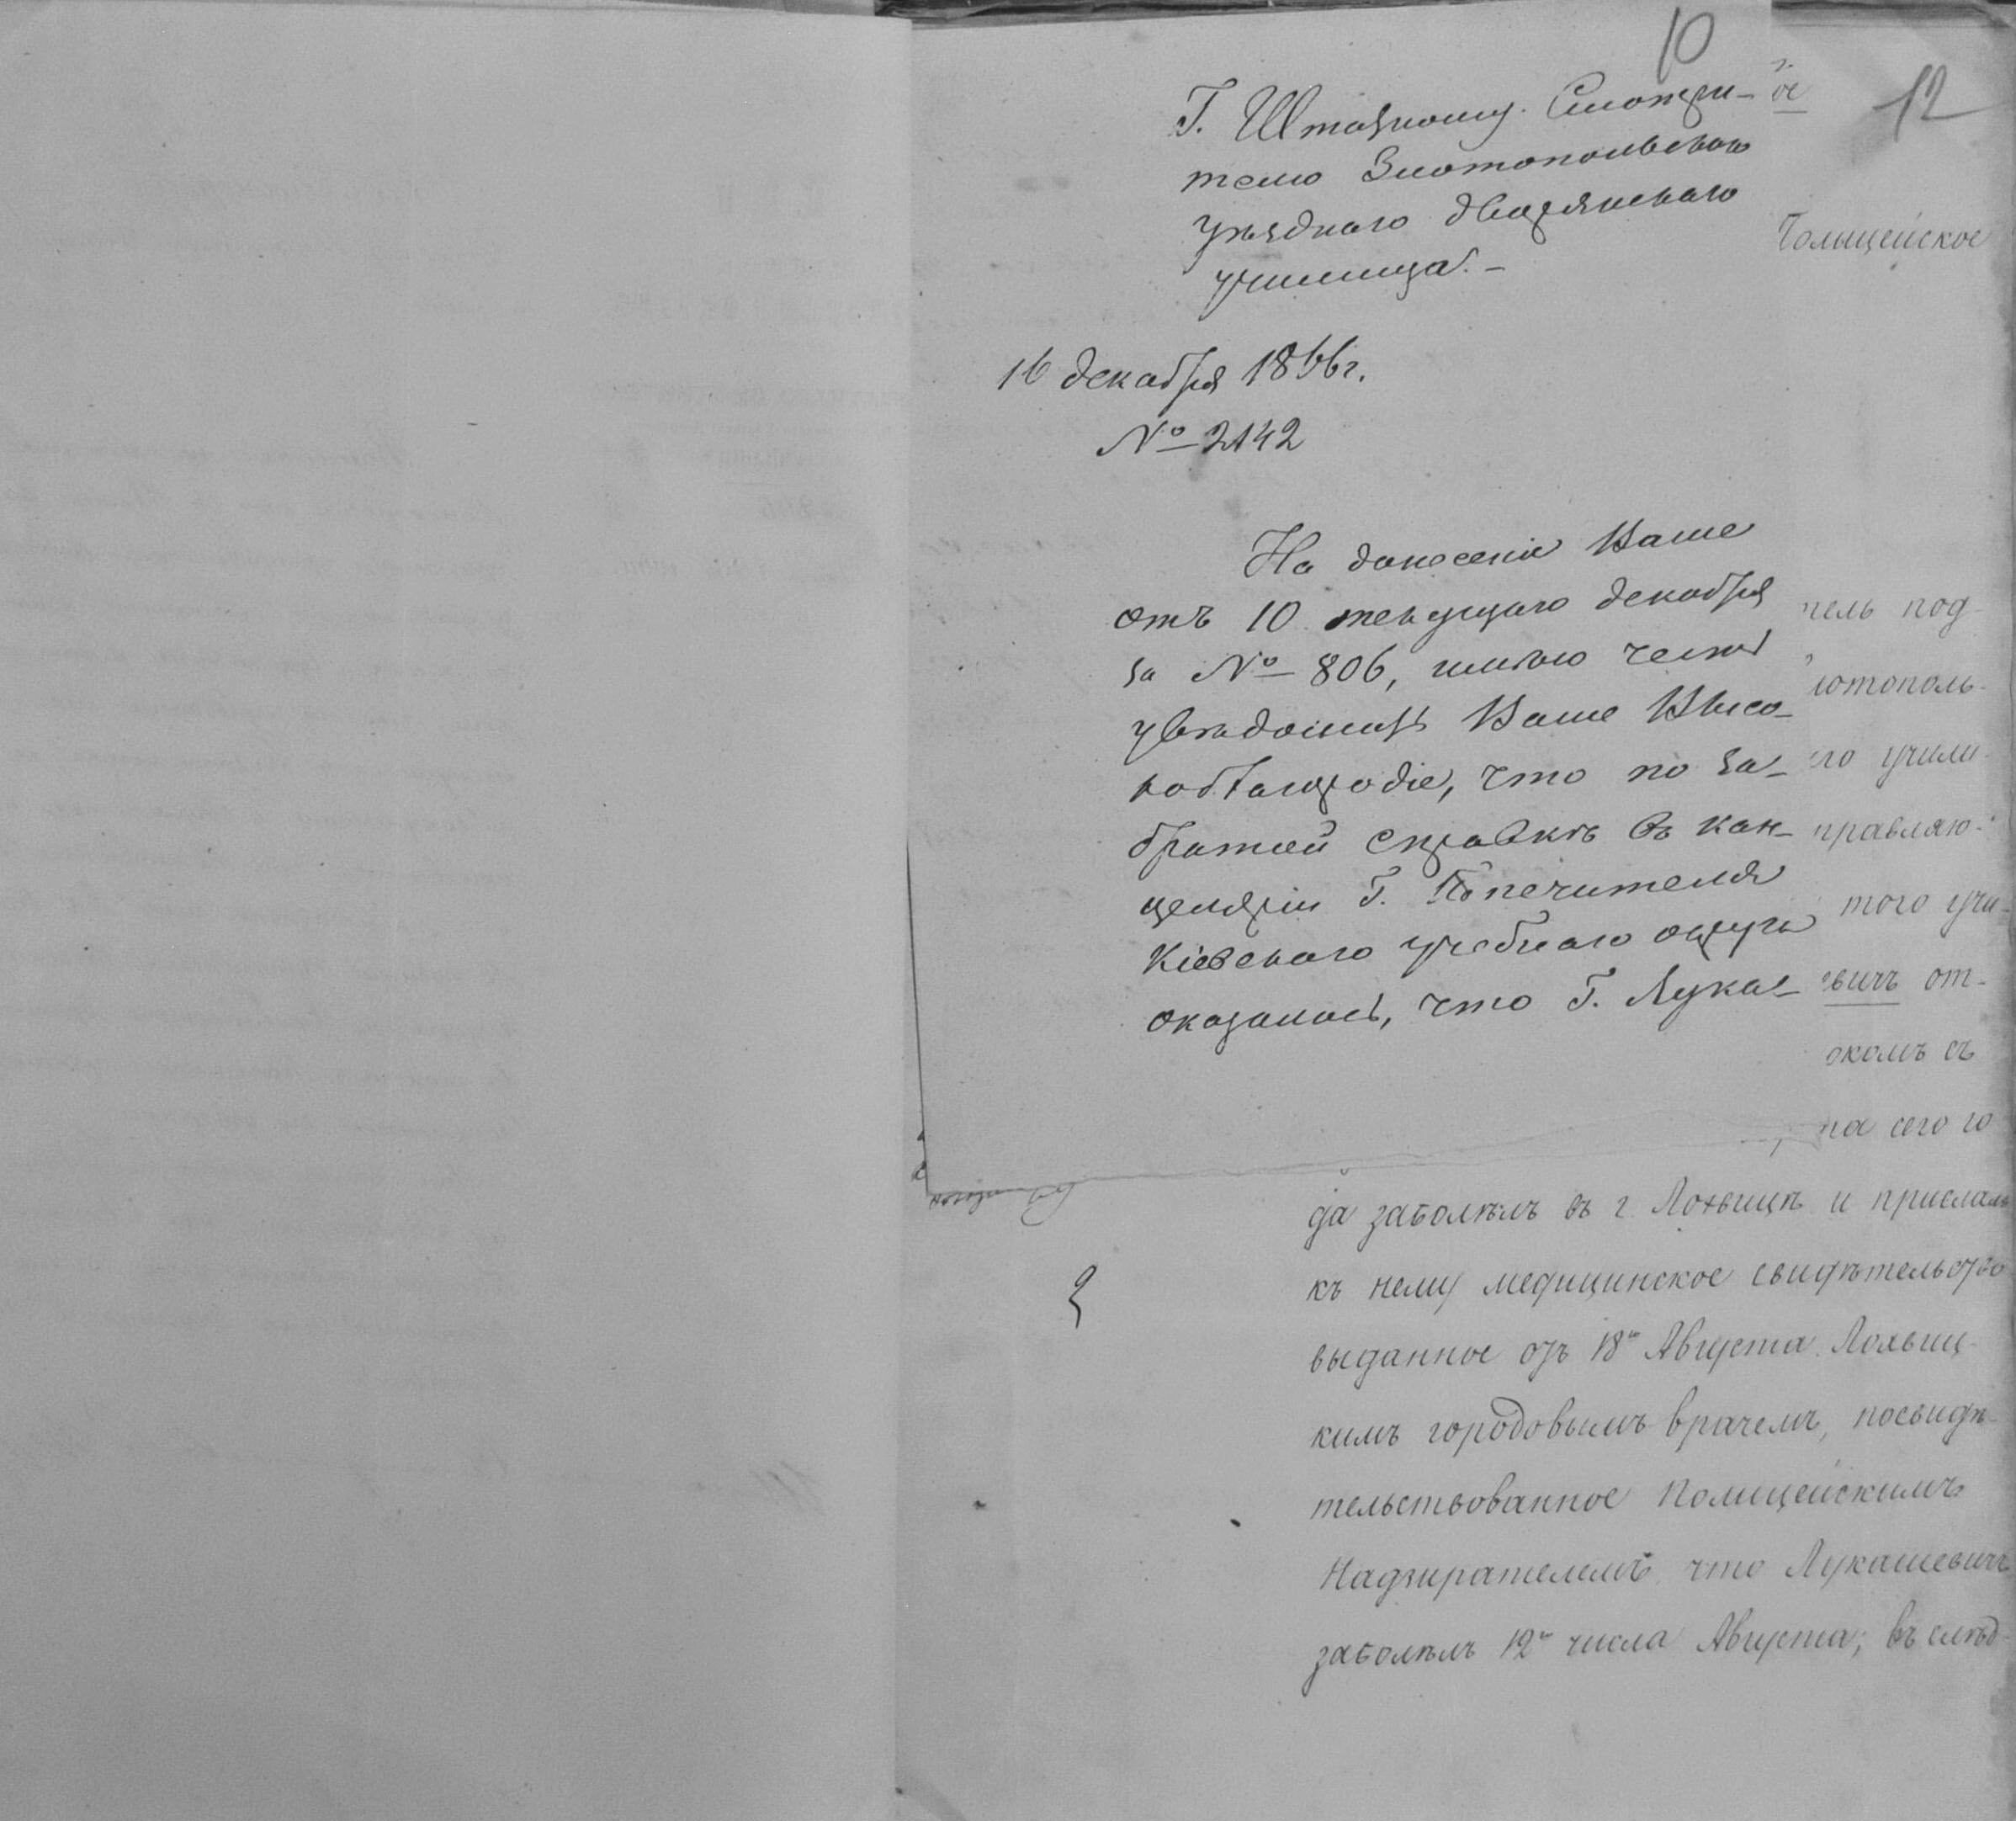 10
12
Г. Штатному Смотри-
телю Златопольскаго
уѣзднаго дворянскаго
училища. -
16 декабря 1866 г.
№ 2142
На донесеніе Ваше
отъ 10 текущаго декабря
за № 806, имѣю честь
увѣдомить Ваше Высо-
коблагородіе, что по за-
бранной справкѣ въ кан-
целяріи Г. Попечителя
Кіевскаго учебнаго округа
оказалось, что Г. Лука-
ое
Полицейское
тель под-
лотополь-
го учили-
правляю-
того учи-
евичъ от-
окомъ съ
на сего го
да заболѣлъ въ г. Лохвицѣ и прислалъ
къ нему медицинское свидѣтельство
выданное отъ 18го Августа Лохвиц-
кимъ городовымъ врачемъ, посвидѣ-
тельствованное Полицейскимъ
Надзирателемъ что Лукашевичъ
заболѣлъ 12го числа Августа; въ слѣд-